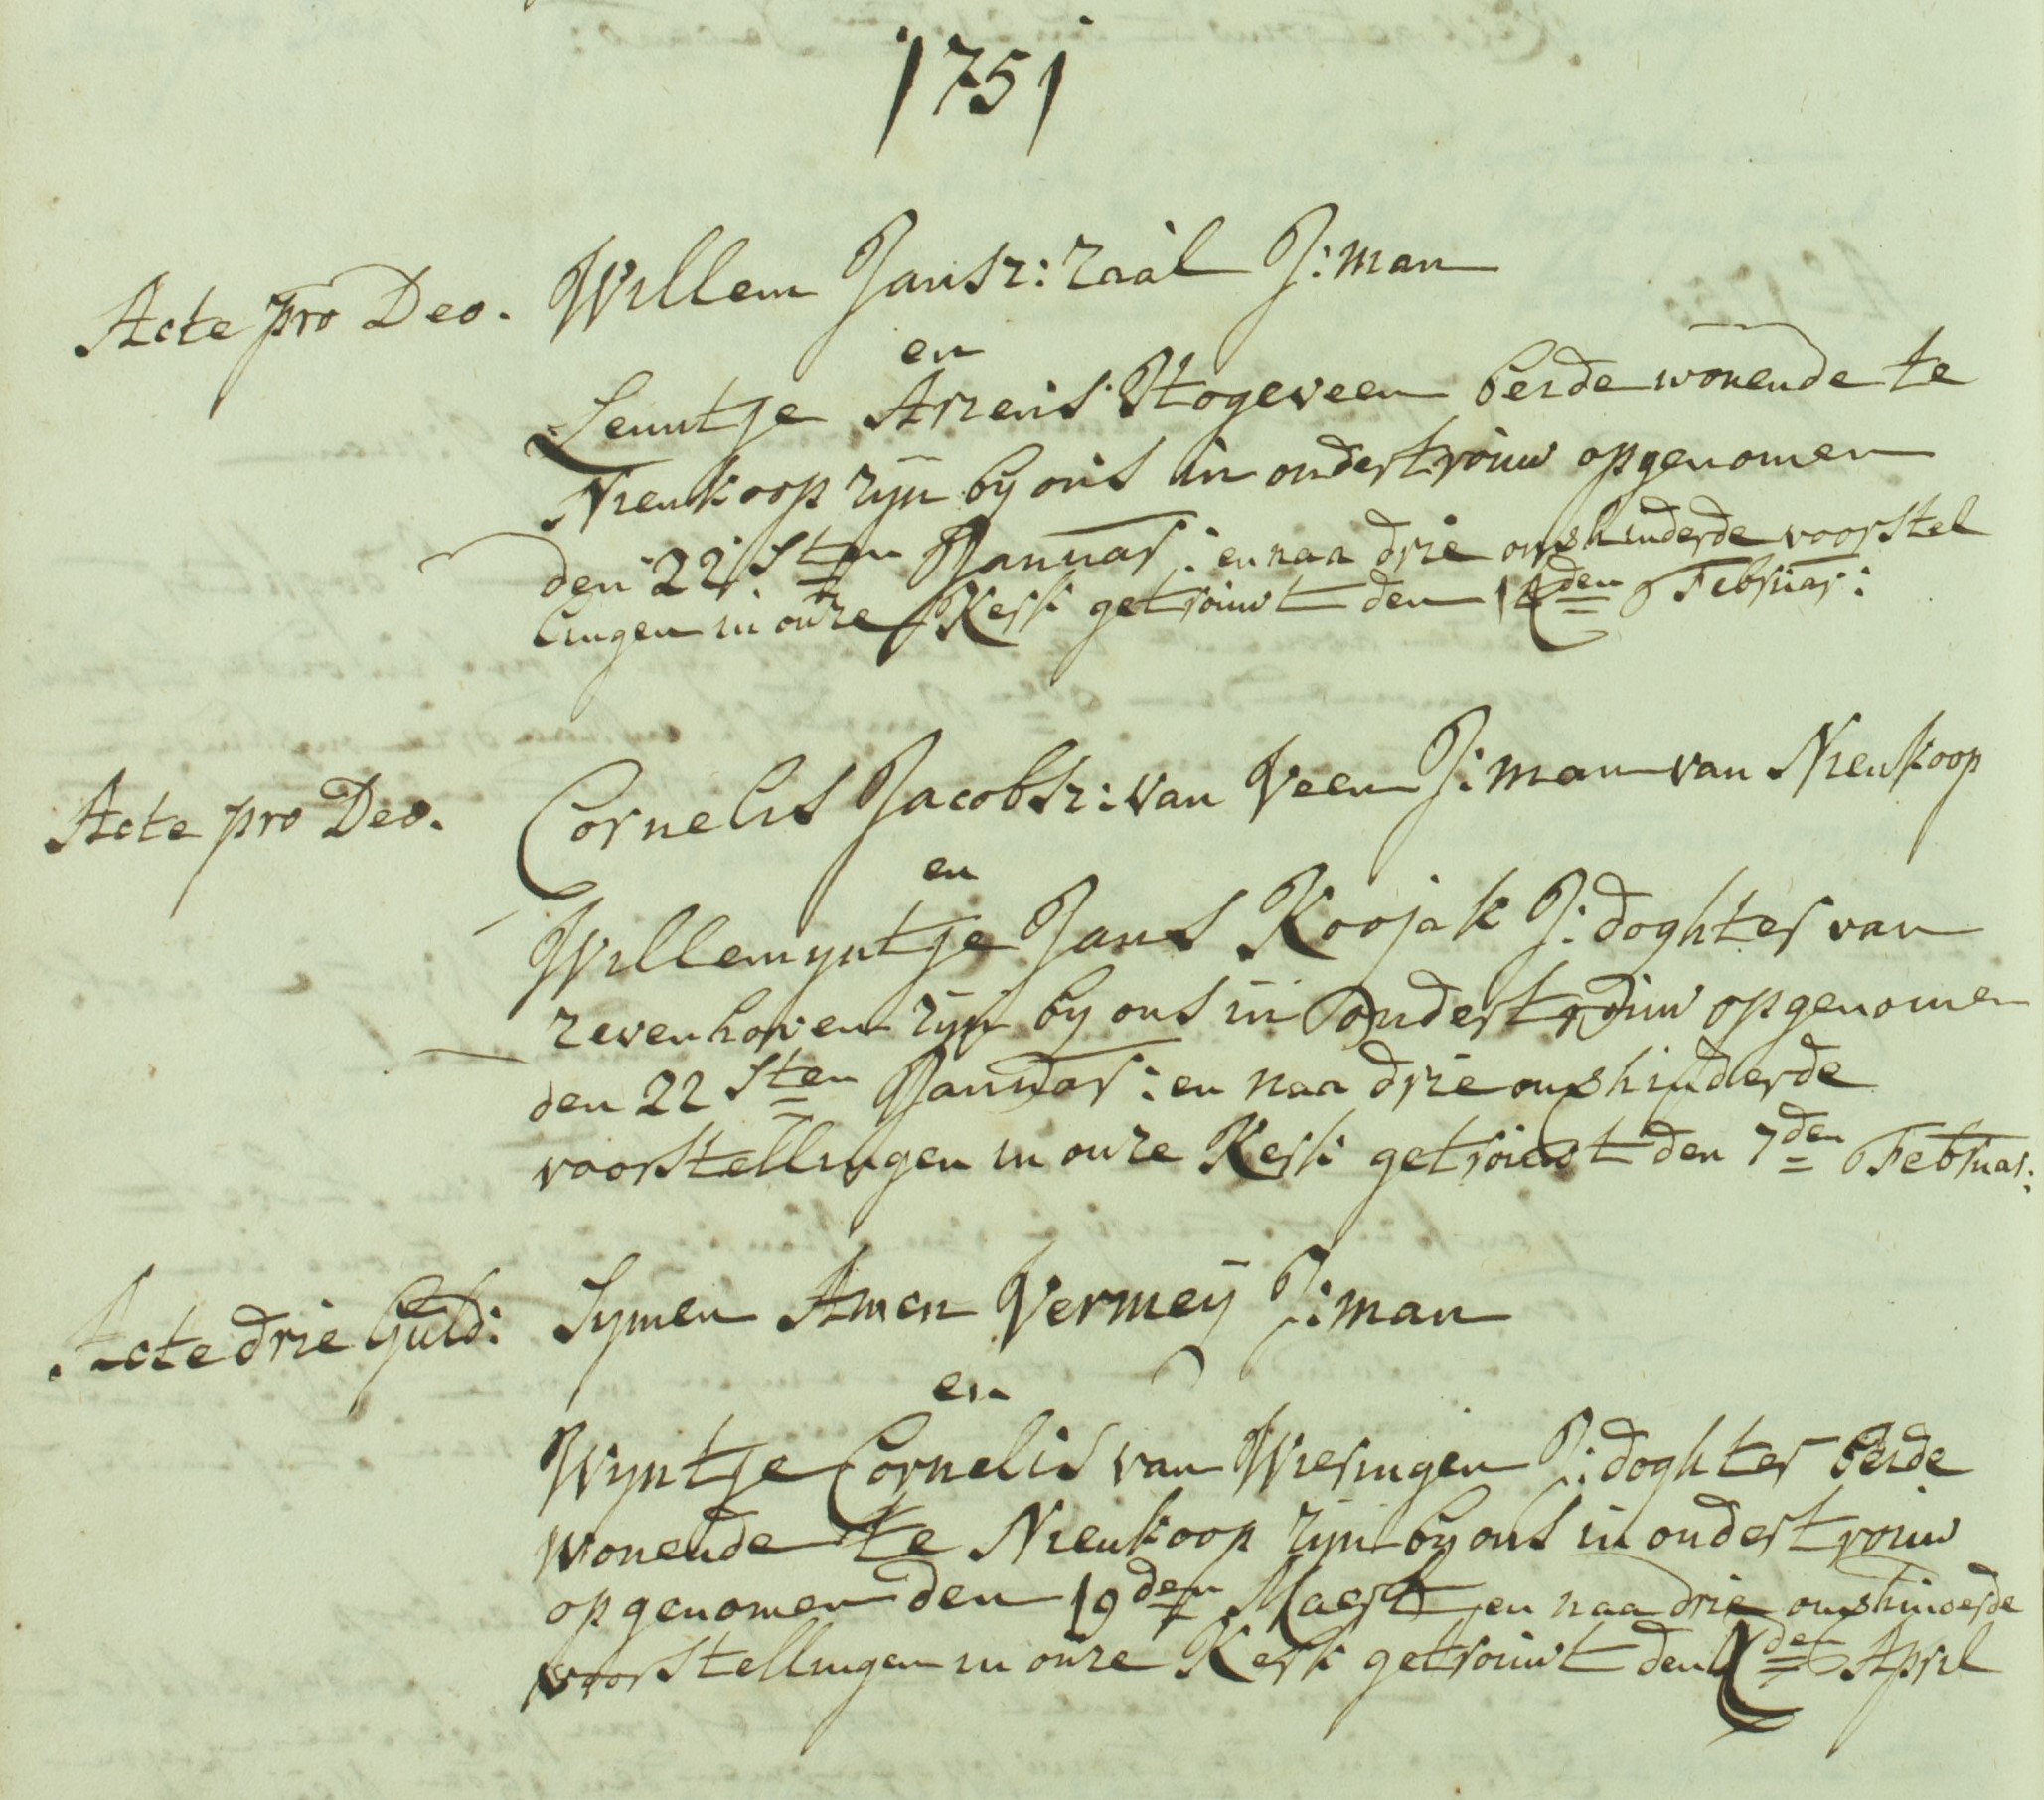 1751
Acte pro Deo. Willem Jansz: zaal J: man
en
Leuntje Arzens Hogeveen beide wonende te
Nieukoop zyn by ons in ondertrouw opgenomen
den 22sten Januar: en naa drie onverhinderde voorstel
lingen in onze Kerk getrouwt den Februar:
Acte pro Deo. Cornelis Jacobsz: van Veen J: man van Nieukoop
en
Willemyntje Jans Koojak J: doghter van
zevenhoven zyn by ons in ondertrouw opgenomen
den 22sten Januar: en naa drie onverhinderde
voorstellingen in onze Kerk getrouwt den 7den Februar:
Acte drie Guld: Symen Vermey J: man
en
Wyntje Cornelis van Wieringen J: doghter beide
wonende te Nieukoop zyn by ons in ondertrouw
opgenomen den 19den Maert en naa drie onverhinderde
voorstellingen in onze Kerk getrouwt den April